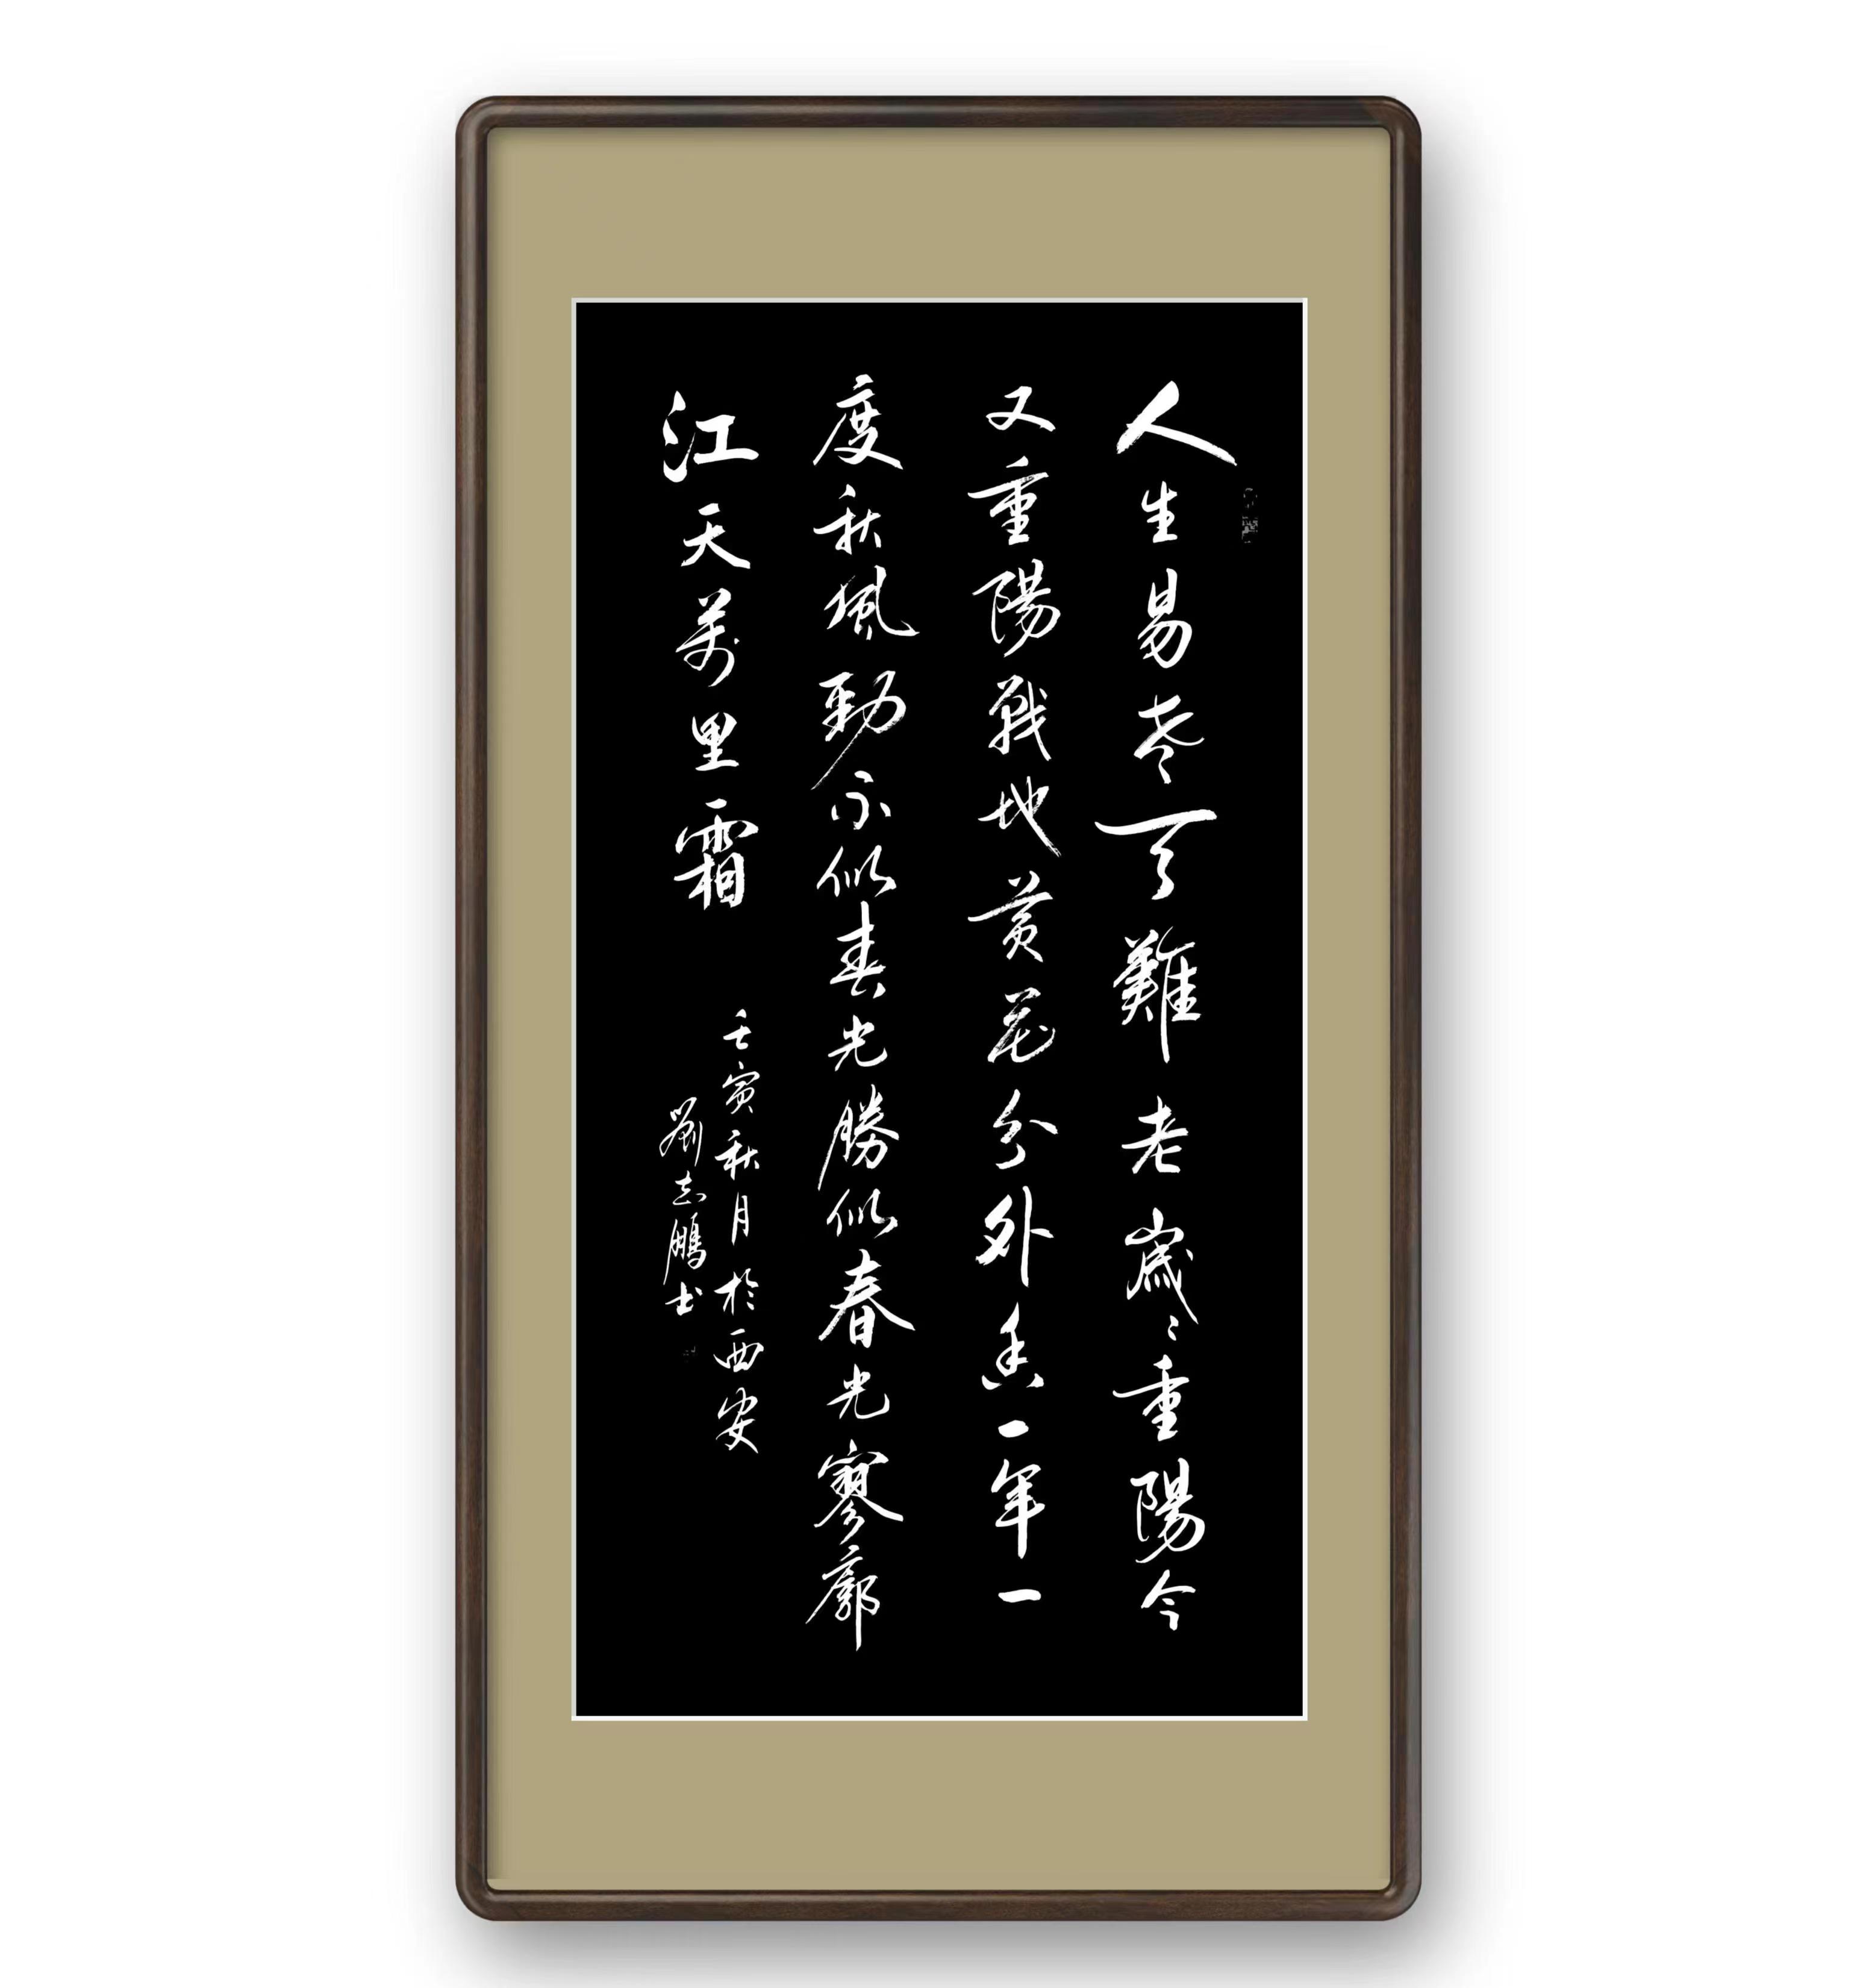 人生易老天難老歲々重陽今
又重陽戰地黃花分外香一年一
度秋風勁不似春光勝似春光寥廓
江天萬里霜
壬寅秋月於西安
劉志鵬书